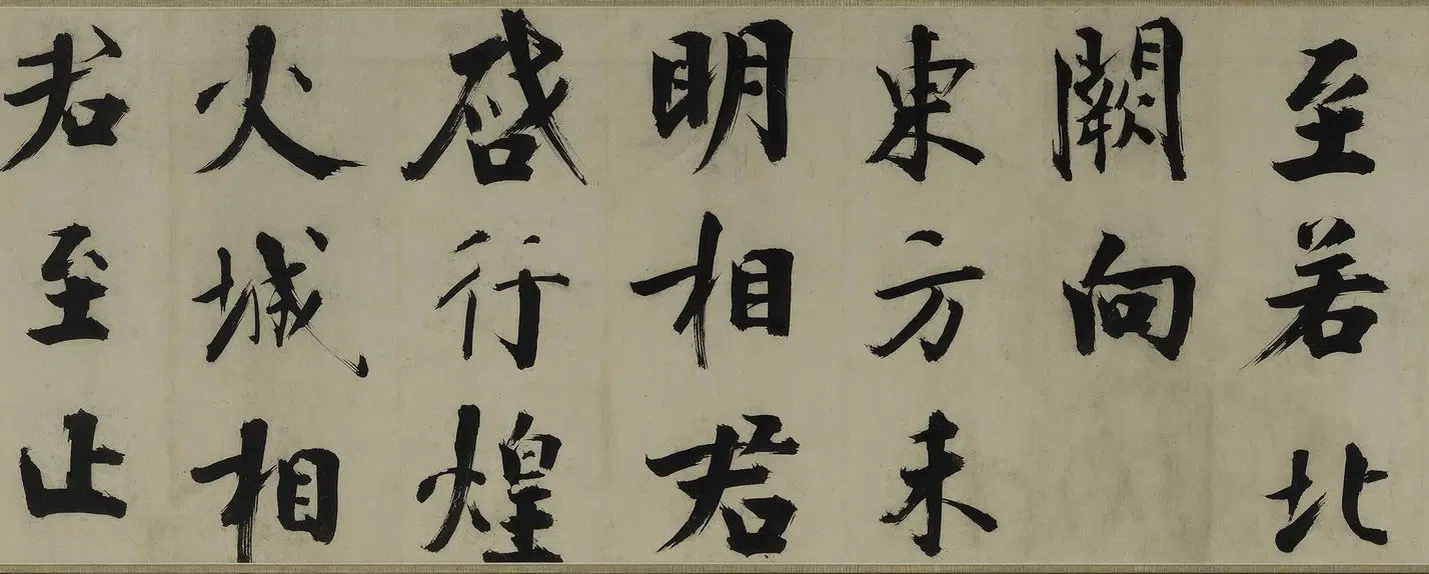 至若北
闕向
東方未
明相君
啓行煌
火城相
君至止